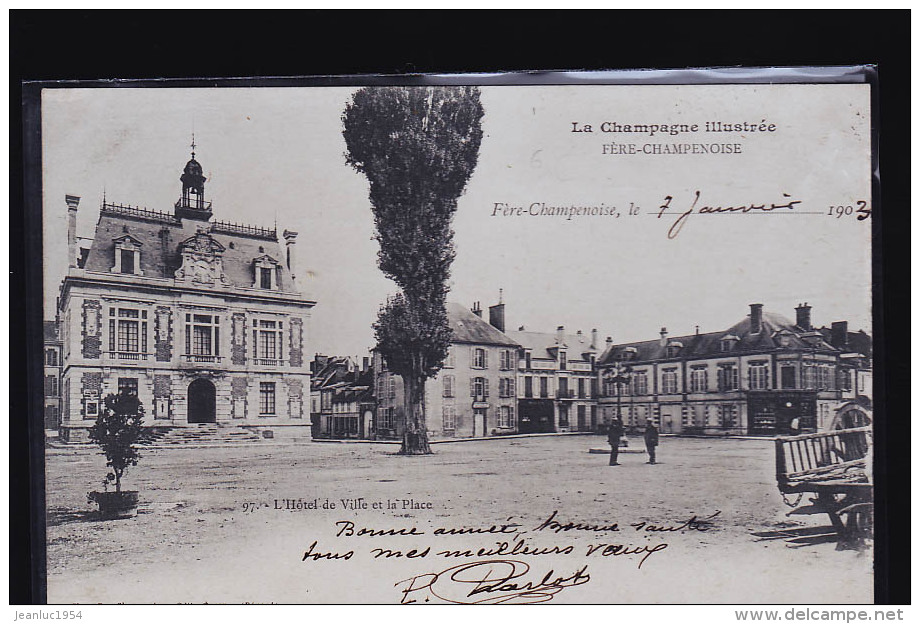 La Champagne illustrée
FÈRE-CHAMPENOISE
Fère-Champenoise, le 7 Janvier 1903
97. - L'Hôtel de Ville et la Place
Bonne année, bonne santé
tous mes meilleurs vœux
jeanluc1954
www.delcampe.net